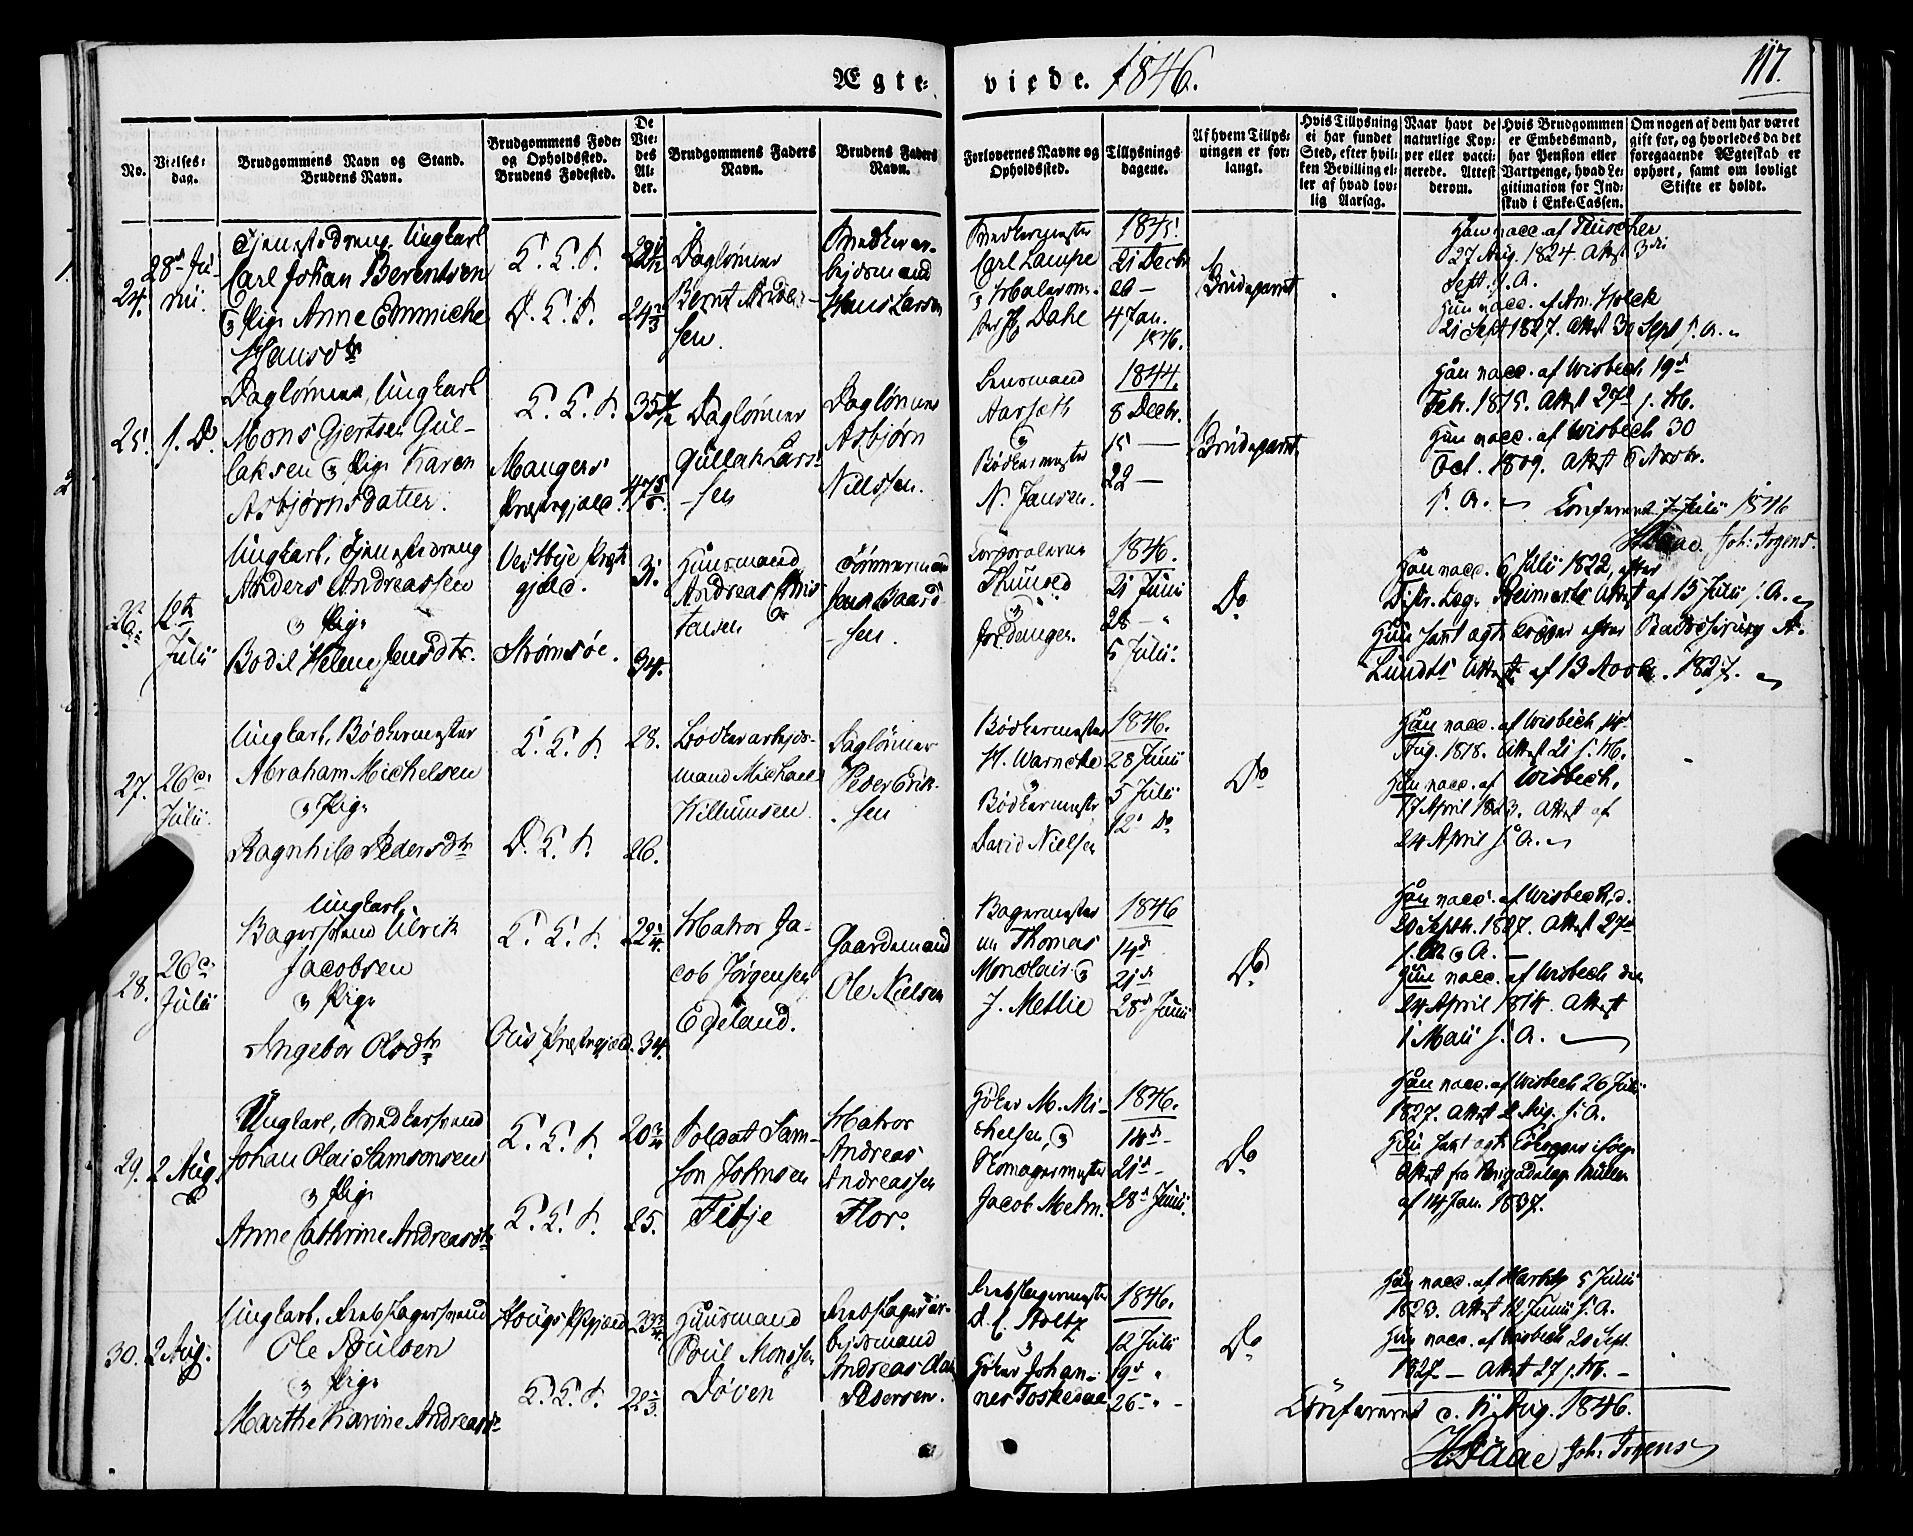 Ægte- viede. 1846.
117.
No.
Vielses-
dag.
Brudgommens Navn og Stand.
Brudens Navn.
Brudgommens Føde-
og Opholdssted.
Brudens Fødested.
De
Vie-
des
Al-
der.
Brudgommens Faders
Navn.
Brudens Faders
Navn.
Forlovernes Navne og
Opholdssted.
Tillysnings-
dagene.
Af hvem Tillys-
ningen er for-
langt.
Hvis Tillysning
ei har fundet
Sted, efter hvil-
ken Bevilling el-
ler af hvad lov-
lig Aarsag.
Naar havt de
naturlige Kop-
per eller vacci-
nerede. Attest
derom.
Hvis Brudgommen
er Embedsmand,
har Pension eller
Vartpenge, hvad Le-
gitimation for Ind-
skud i Enke-Cassen.
Om nogen af dem har været
gift før, og hvorledes da det
foregaaende Ægteskab er
ophørt, samt om lovligt
Skifte er holdt.
24.
28de Ju-
nii.
Tjenestedreng, Ungkarl
Carl Johan Berentsen
og Pige Anne Emmiche
Hansdtr
24 2/3
Daglønner
Bernt Ander-
sen.
Hans Larsen
Carl Lampe
Dahl
1845.
21 Decbr
4 Jan.
1846.
Brudeparret
27 Aug. 1824. Attest 3die
Sept. s. A.
Hun vacc. af Am. Holck
21 Sept 1827. Attest 30 Sept s. A.
25.
s. D.
Daglønner, Ungkarl
Mons Gjertsen Gul-
laksen og Pige Karen
Asbjørnsdatter.
Mangers
Præstegjeld.
Daglønner
Gullak Lars-
sen
Daglønner
Asbjørn
Nilssen.
Lensmand
Aarseth
og
Bødkermester
N. Jansen.
1844.
8 Decbr.
15 —
22 —
Brudeparret
Han vacc. af Wisbech 19de
Febr. 1815. Attest 27de s. M.
Hun vacc. af Wisbech 30
Oct. 1809. Attest 6 Novbr.
s. A.
Confereret 7 Julii 1846
26.
12te
Julii
Ungkarl, Tjenestedreng
Anders Andreassen
og Pige
Bodil Helene Jensdtr.
Vestbye Præste-
gjeld.
Strømsøe.
31.
34.
Huusmand
Andreas Chris-
tensen
Tømmermand
Jens Baard-
sen.
Corporalerne
Thunold
og
1846.
21 Junii
28 —
5 Julii.
Do
Han vacc. 6 Julii 1822, efter
Attest af 15 Julii s. A.
Lundts Attest af 13 Novbr. 1827.
27.
26de
Julii.
Ungkarl, Bødkermester
Abraham Michelsen
og Pige
Ragnhild Pedersdtr
28.
26.
Bødkerarbeids-
mand Michael
Willumsen.
Daglønner
Peder Erik-
sen
Bødkermester
H. Warncke
og
Bødkermester
David Nielsen
1846.
28 Junii
5 Julii
12 Do
Do
Han vacc. af Wisbech 14de
Aug. 1818. Attest 21 s. M.
Hun vacc. af Wisbech.
17 April 1823. Attest af
24 April s. A.
28.
26de
Julii
Ungkarl,
Bagersvend Ulrik
Jacobsen
og Pige
Ingebor Olsdtr
Præstegjeld.
22 1/4.
34.
Matros Ja-
cob Jørgensen
Egeland.
Gaardmand
Ole Nielsen
Bagermester-
ne Thomas
Monclair og
J. Meltie
1846
14de
21de
28de Junii
Do
Han vacc. af Wisbech, d.
20 Septbr. 1827. Attest 27de
s. M. og A.
Hun vacc. af Wisbech den
24 April 1814. Attest
1 Maii s. A.
29.
2 Aug.
Ungkarl, Snedkersvend
Johan Olai Samsonsen
og Pige
Anne Cathrine Andreasdtr
20 3/4
25.
Soldat Sam-
son Johnsen
Fitje
Matros
Andreas
Andreassen
Flor.
M. Mi-
chelsen, og
Skomagermester
Jacob Mehn.
1846.
14de
21de
28de Junii.
Do
Han vacc. af Wisbech 26 Julii
1827. Attest 2 Aug. s. A.
Müller
af 14 Jan. 1837.
30.
2 Aug.
Ungkarl, Rebslagersvend
Ole Poulsen
og Pige
Marthe Karine Andreasdtr
Hougs Pgjeld
23 3/4.
22 2/3.
Huusmand
Poul Monssen
Døven
Rebslagerar-
beidsmand
Andreas Olai
Pedersen.
Rebslagermester
D. C. Stoltz
og
Johan-
nes Toskedal
1846.
12 Julii
19de
26
Do
5 Julii
1823. Attest 12 Junii s. A.
Hun vacc. af Wisbech 20 Sept.
1827 — Attest 27 s. M. —
Confereret d. 11 Aug. 1846.